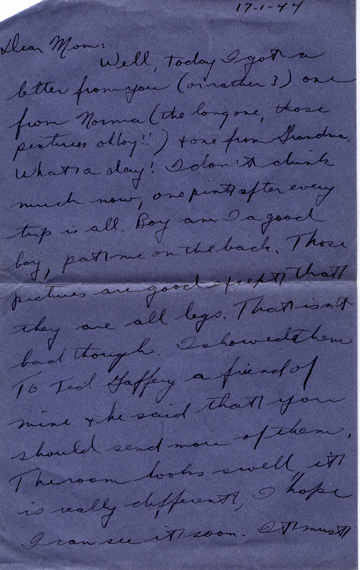 17-1-44
Dear Mom:
Well, today I got a
letter from you (or rather 3) one
from Norma (the long one, those
pictures oh boy!!) & one from Grandma.
What a day! I don't drink
much now, one pint after every
trip is all. Boy am I a good
boy, pat me on the back. Those
pictures are good except that
they are all legs. That isn't
bad though. I showed them
To Ted Gaffery a friend of
mine & he said that you
should send more of them.
The room looks swell, it
is really different, I hope
I can see it soon. It must